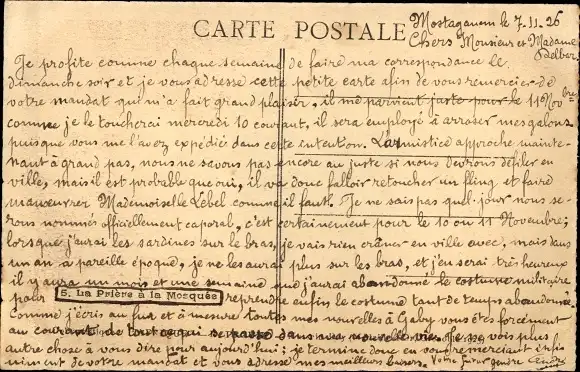 CARTE POSTALE
Mostaganem le 7.11.26
Chers Monsieur et Madame
Delber
Je profite comme chaque semaine de faire ma correspondance le
dimanche soir et je vous adresse cette petite carte afin de vous remercier de
votre mandat qui m'a fait grand plaisir, il me parvient juste pour le 11 Novbre
comme je le toucherai mercredi 10 courant, il sera employé à arroser mes galons
puisque vous me l'avez expédié dans cette intention. L'armistice approche mainte-
nant à grand pas, nous ne savons pas encore au juste si nous devrons défiler en
ville, mais il est probable que oui, il va donc falloir retoucher un fling et faire
manœuvrer Mademoiselle Lebel comme il faut. Je ne sais pas quel jour nous se-
rons nommés officiellement caporal, c'est certainement pour le 10 ou 11 Novembre;
lorsque j'aurai les sardines sur le bras, je vais rien crâner en ville avec, mais dans
un an à pareille époque, je ne les aurai plus sur les bras, et j'en serai très heureux
il y aura un mois et une semaine que j'aurai abandonné le costume militaire
pour reprendre enfin le costume tant de temps abandonné
5. La Prière à la Mosquée
Comme j'écris au fur et à mesure toutes mes nouvelles à Gaby vous êtes forcément
au courant de tout ce qui se passe dans ma nouvelle vie. Je ne vois plus
autre chose à vous dire pour aujourd'hui; je termine donc en vous remerciant infi-
niment de votre mandat et vous adresse mes meilleurs baisers. Votre futur gendre André